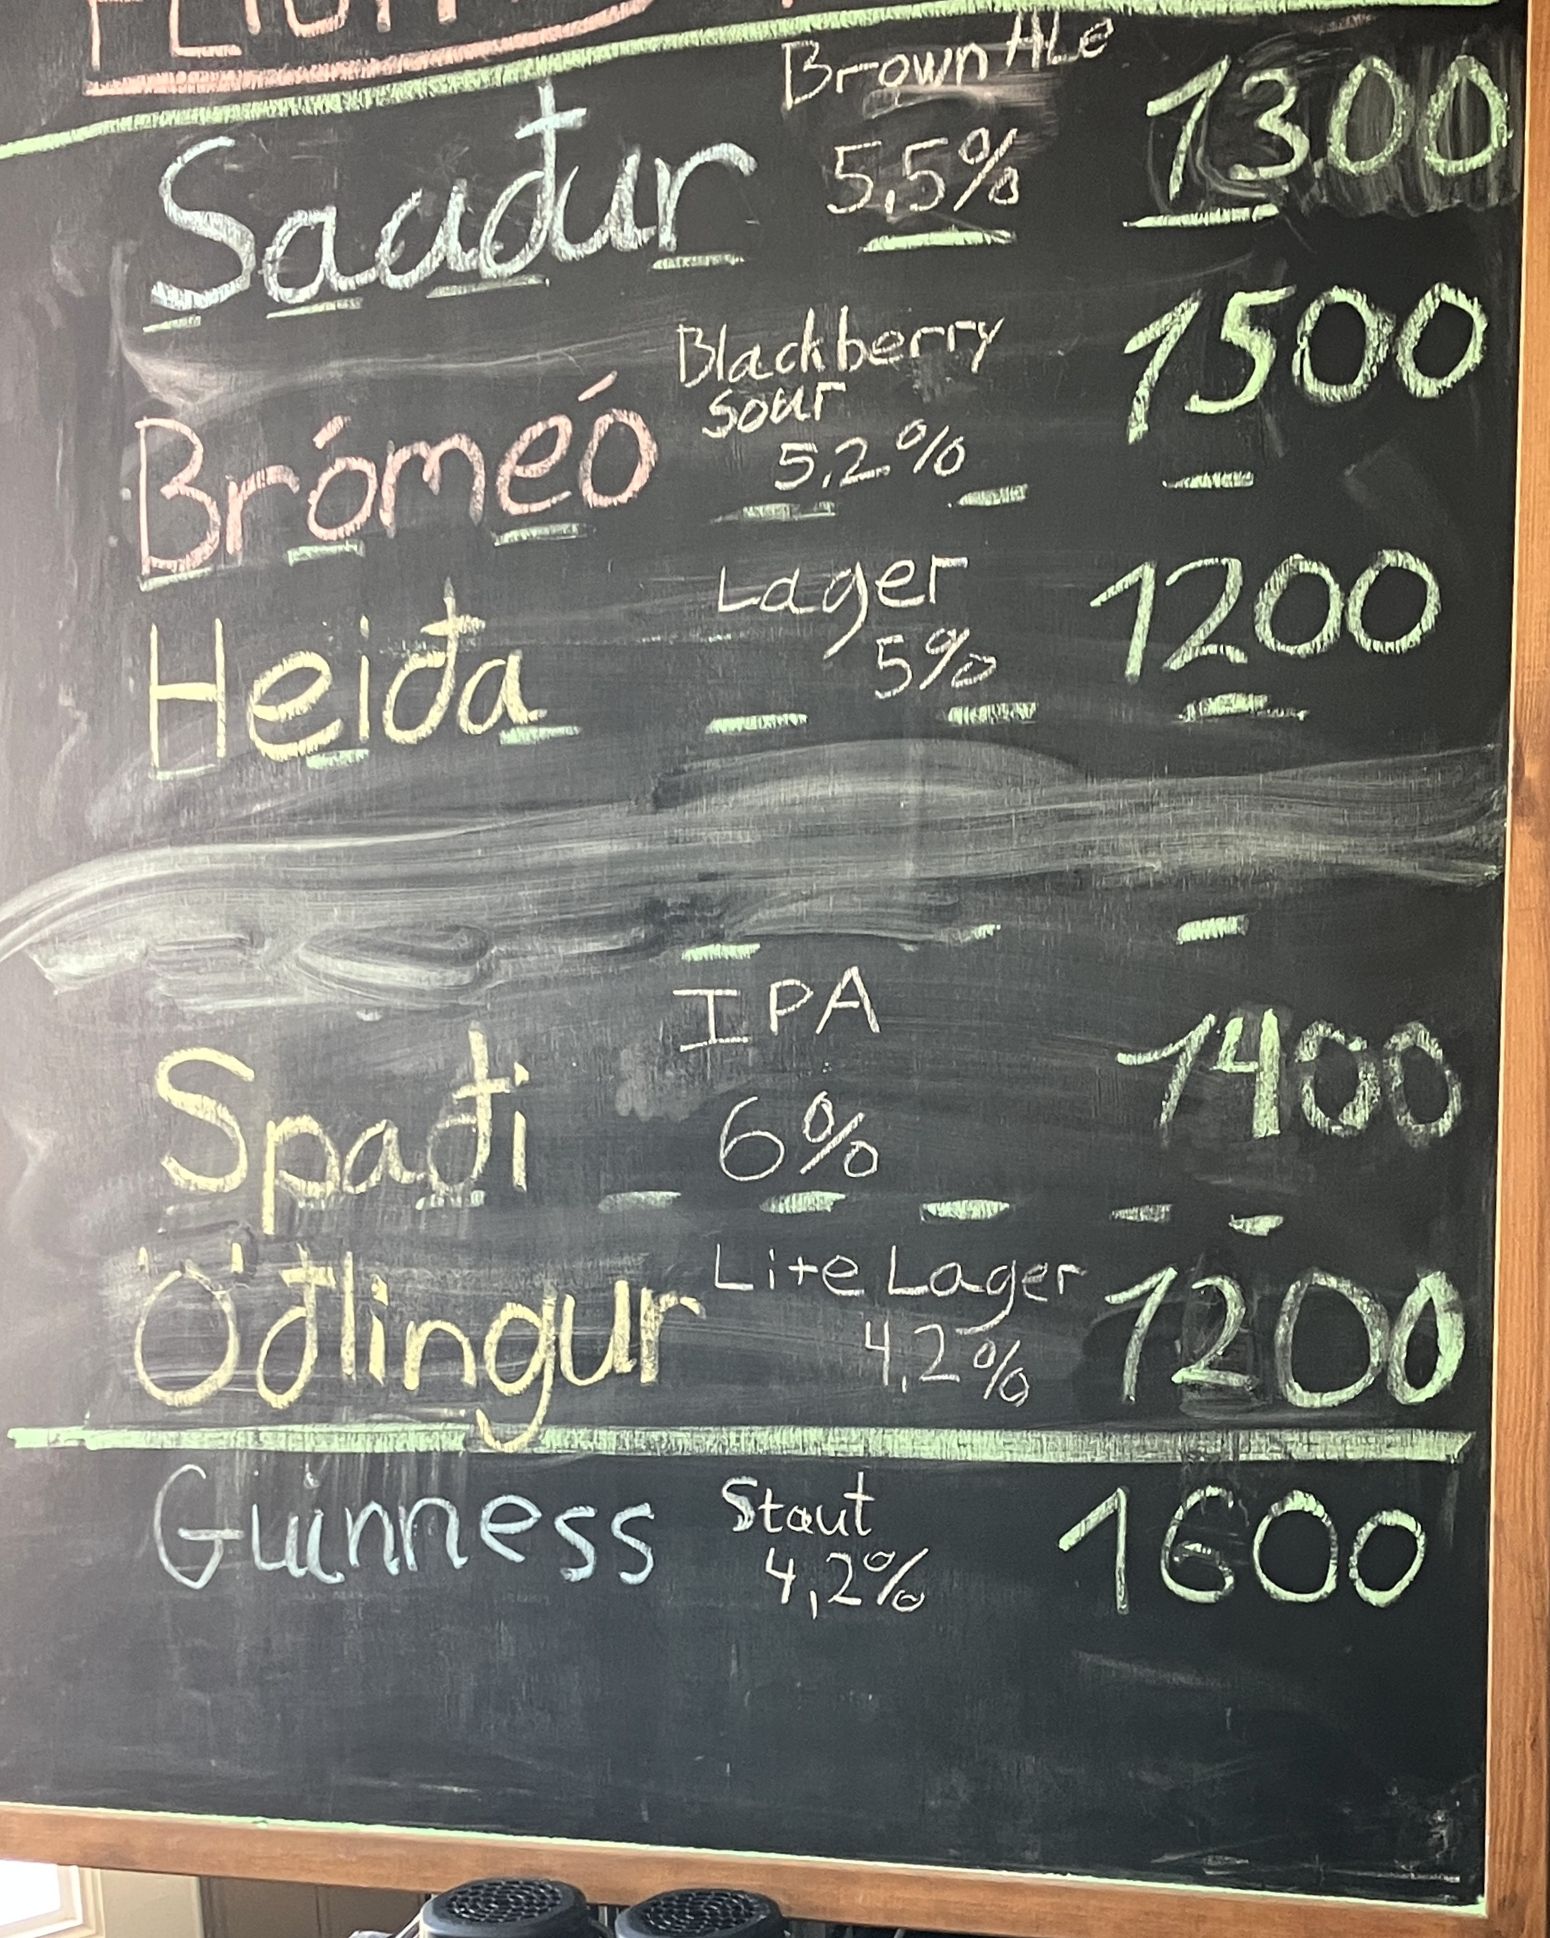 Brown Ale
Sauður 5,5% 1300
Blackberry
Sour
Brómeó 5,2% 1500
Lager
Heiða 5% 1200
IPA
Spaði 6% 1400
Öðlingur Lite Lager 1200
4,2%
Guinness Staut 1600
4,2%